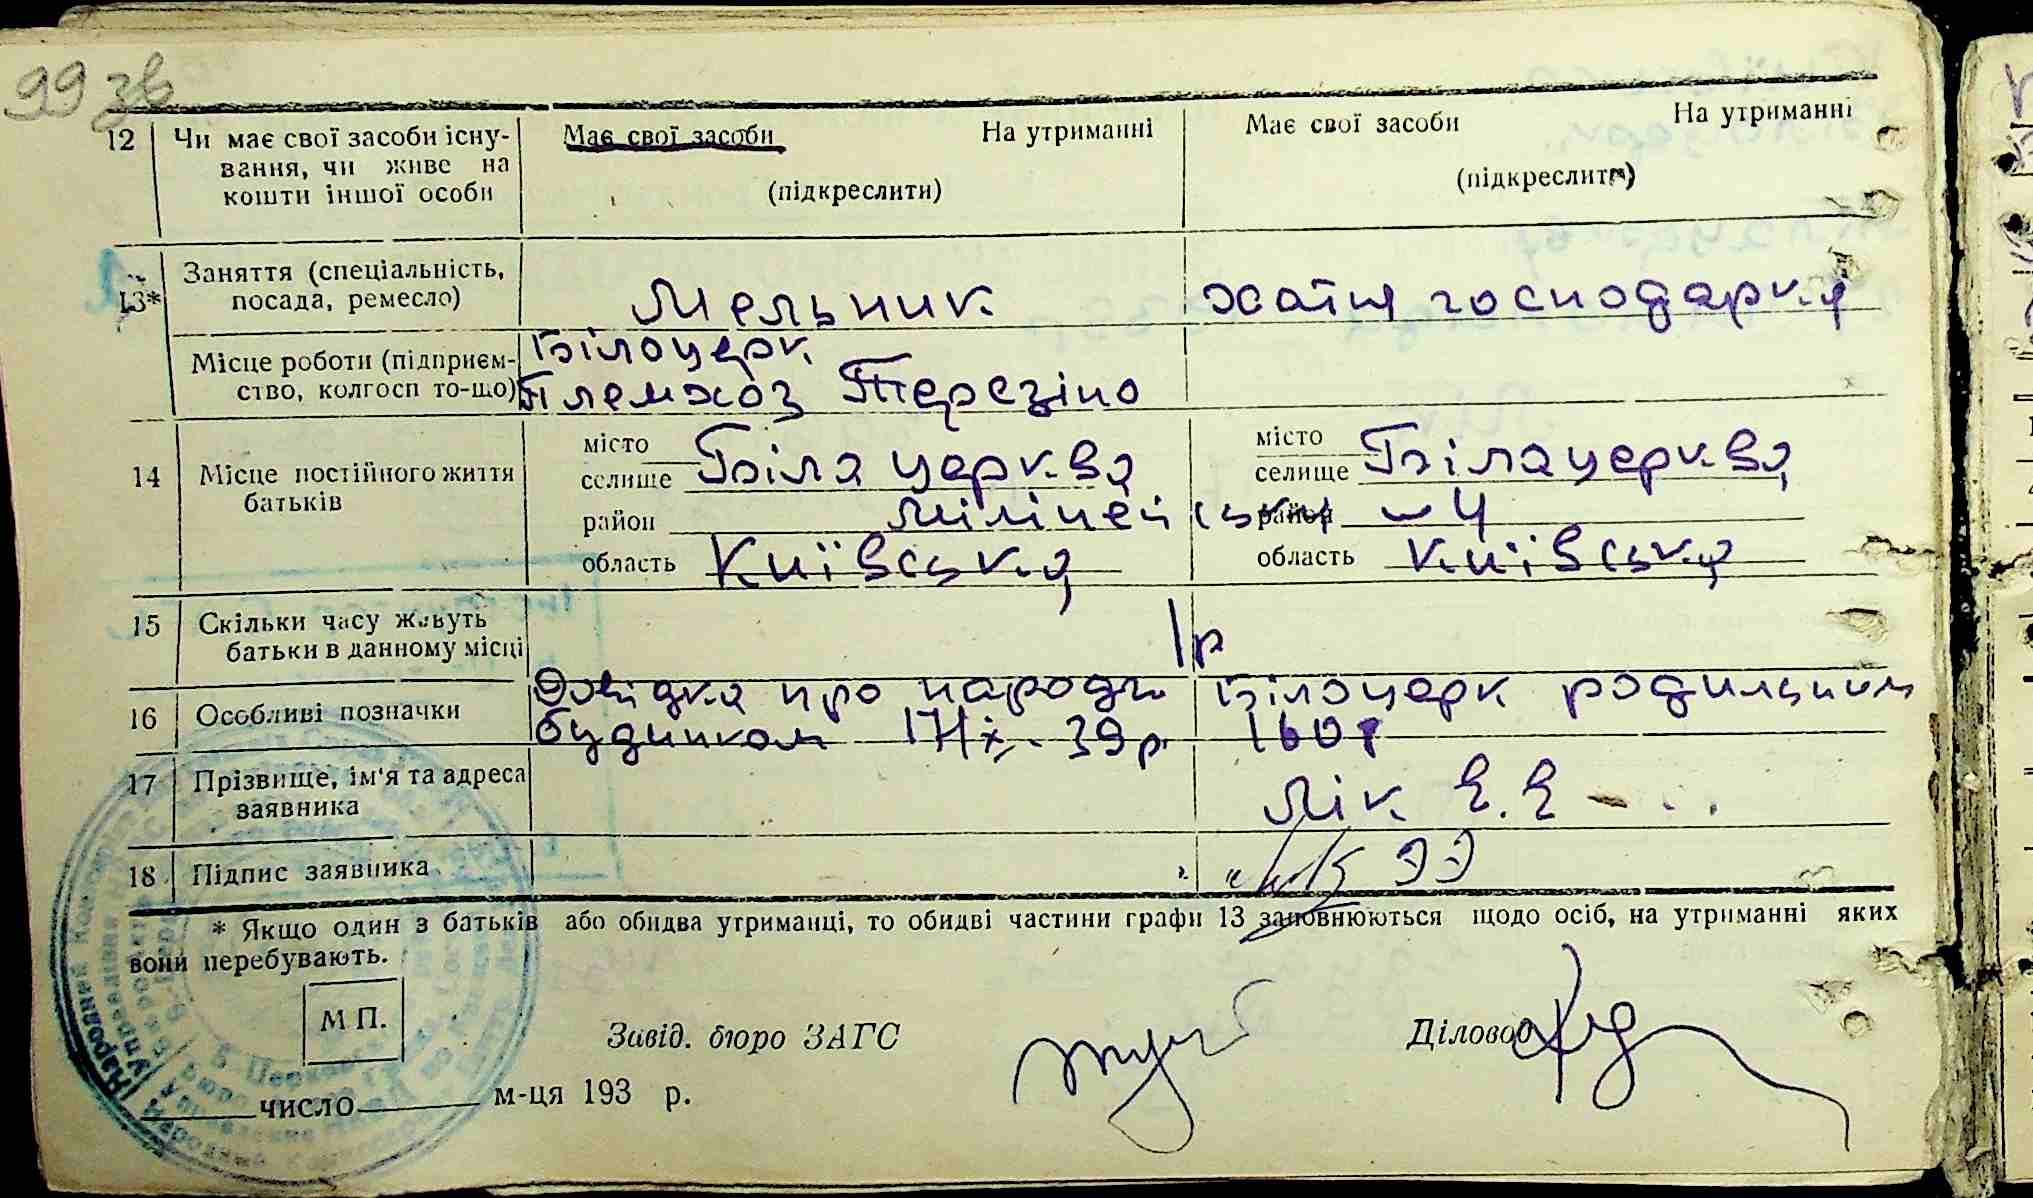 99 зв
12 Чи має свої засоби існу- Має свої засоби На утриманні Має свої засоби На утриманні
вання, чи живе на
кошти іншої особи (підкреслити) (підкреслити)
13* Заняття (спеціальність,
посада, ремесло) Мельник хатня господарка
Місце роботи (підприєм- Білоцерк.
ство, колгосп то-що) Племхоз Терезіно
14 Місце постійного життя місто місто
батьків селище Біла церква селище Білацерква
район Міліцейська район 4
область Київська область Київська
15 Скільки часу живуть 1р
батьки в данному місці
16 Особливі позначки Довідка про народж Білоцерк родильним
будинком 17/ІХ-39р. 1607
17 Прізвище, ім'я та адреса
заявника Лік Е.Е
18 Підпис заявника
* Якщо один з батьків або обидва утриманці, то обидві частини графи 13 заповнюються щодо осіб, на утриманні яких
вони перебувають.
М П.
Завід. бюро ЗАГС Діловод
число м-ця 193 р.